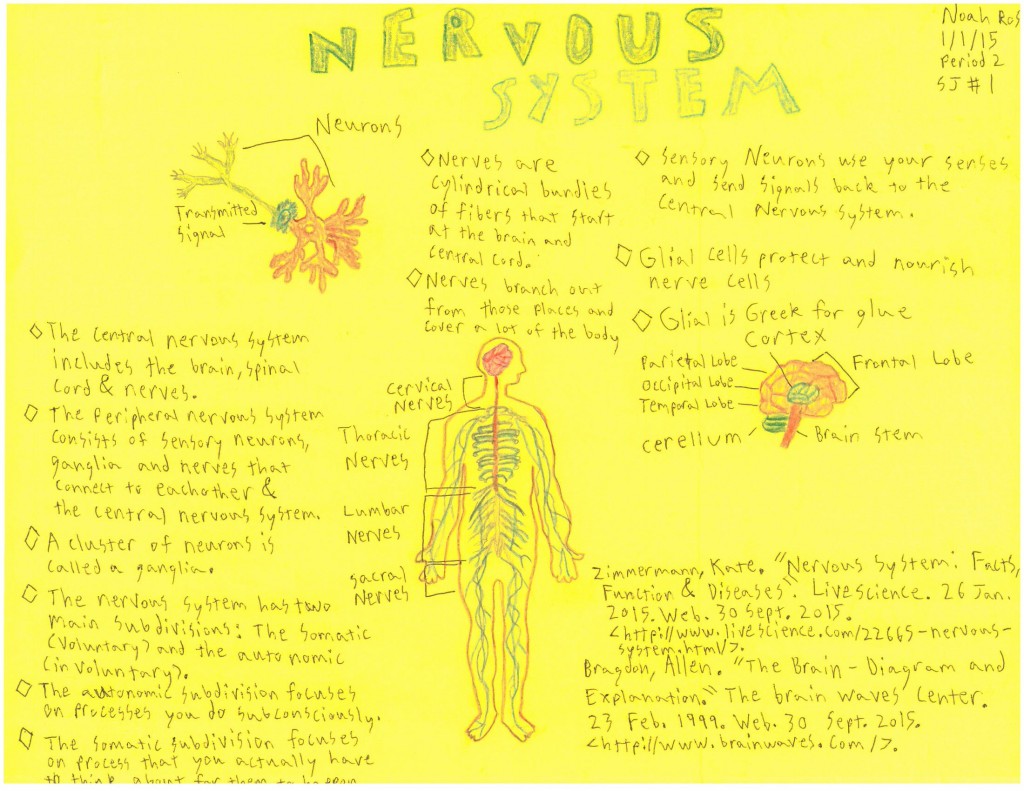 NERVOUS
SYSTEM
Noah Ros
1/1/15
Period 2
SJ #1
Neurons
Transmitted
Signal
◇ Nerves are
cylindrical bundles
of fibers that start
at the brain and
central cord.
◇ Nerves branch out
from those places and
cover a lot of the body
◇ Sensory Neurons use your senses
and send signals back to the
central Nervous system.
◇ Glial cells protect and nourish
nerve cells
◇ Glial is Greek for glue
Cortex
Parietal Lobe
Occipital Lobe
Temporal Lobe
cerellum
Frontal Lobe
Brain stem
◇ The central nervous system
includes the brain, spinal
cord & nerves.
◇ The Peripheral nervous system
consists of sensory neurons,
ganglia and nerves that
connect to eachother &
the central nervous system.
◇ A cluster of neurons is
called a ganglia.
◇ The nervous system has two
main subdivisions: The Somatic
(voluntary) and the autonomic
(involuntary).
◇ The autonomic subdivision focuses
on processes you do subconsciously.
◇ The somatic subdivision focuses
on process that you actually have
to think about for them to happen
Cervical
Nerves
Thoracic
Nerves
Lumbar
Nerves
sacral
Nerves
Zimmermann, Kate. "Nervous System: Facts,
Function & Diseases". Livescience. 26 Jan.
2015. Web. 30 Sept. 2015.
<http://www.livescience.com/22665-nervous-
system.html/>.
Bragdon, Allen. "The Brain - Diagram and
Explanation." The brain waves Center.
23 Feb. 1999. Web. 30 Sept. 2015.
<http://www.brainwaves.com/>.